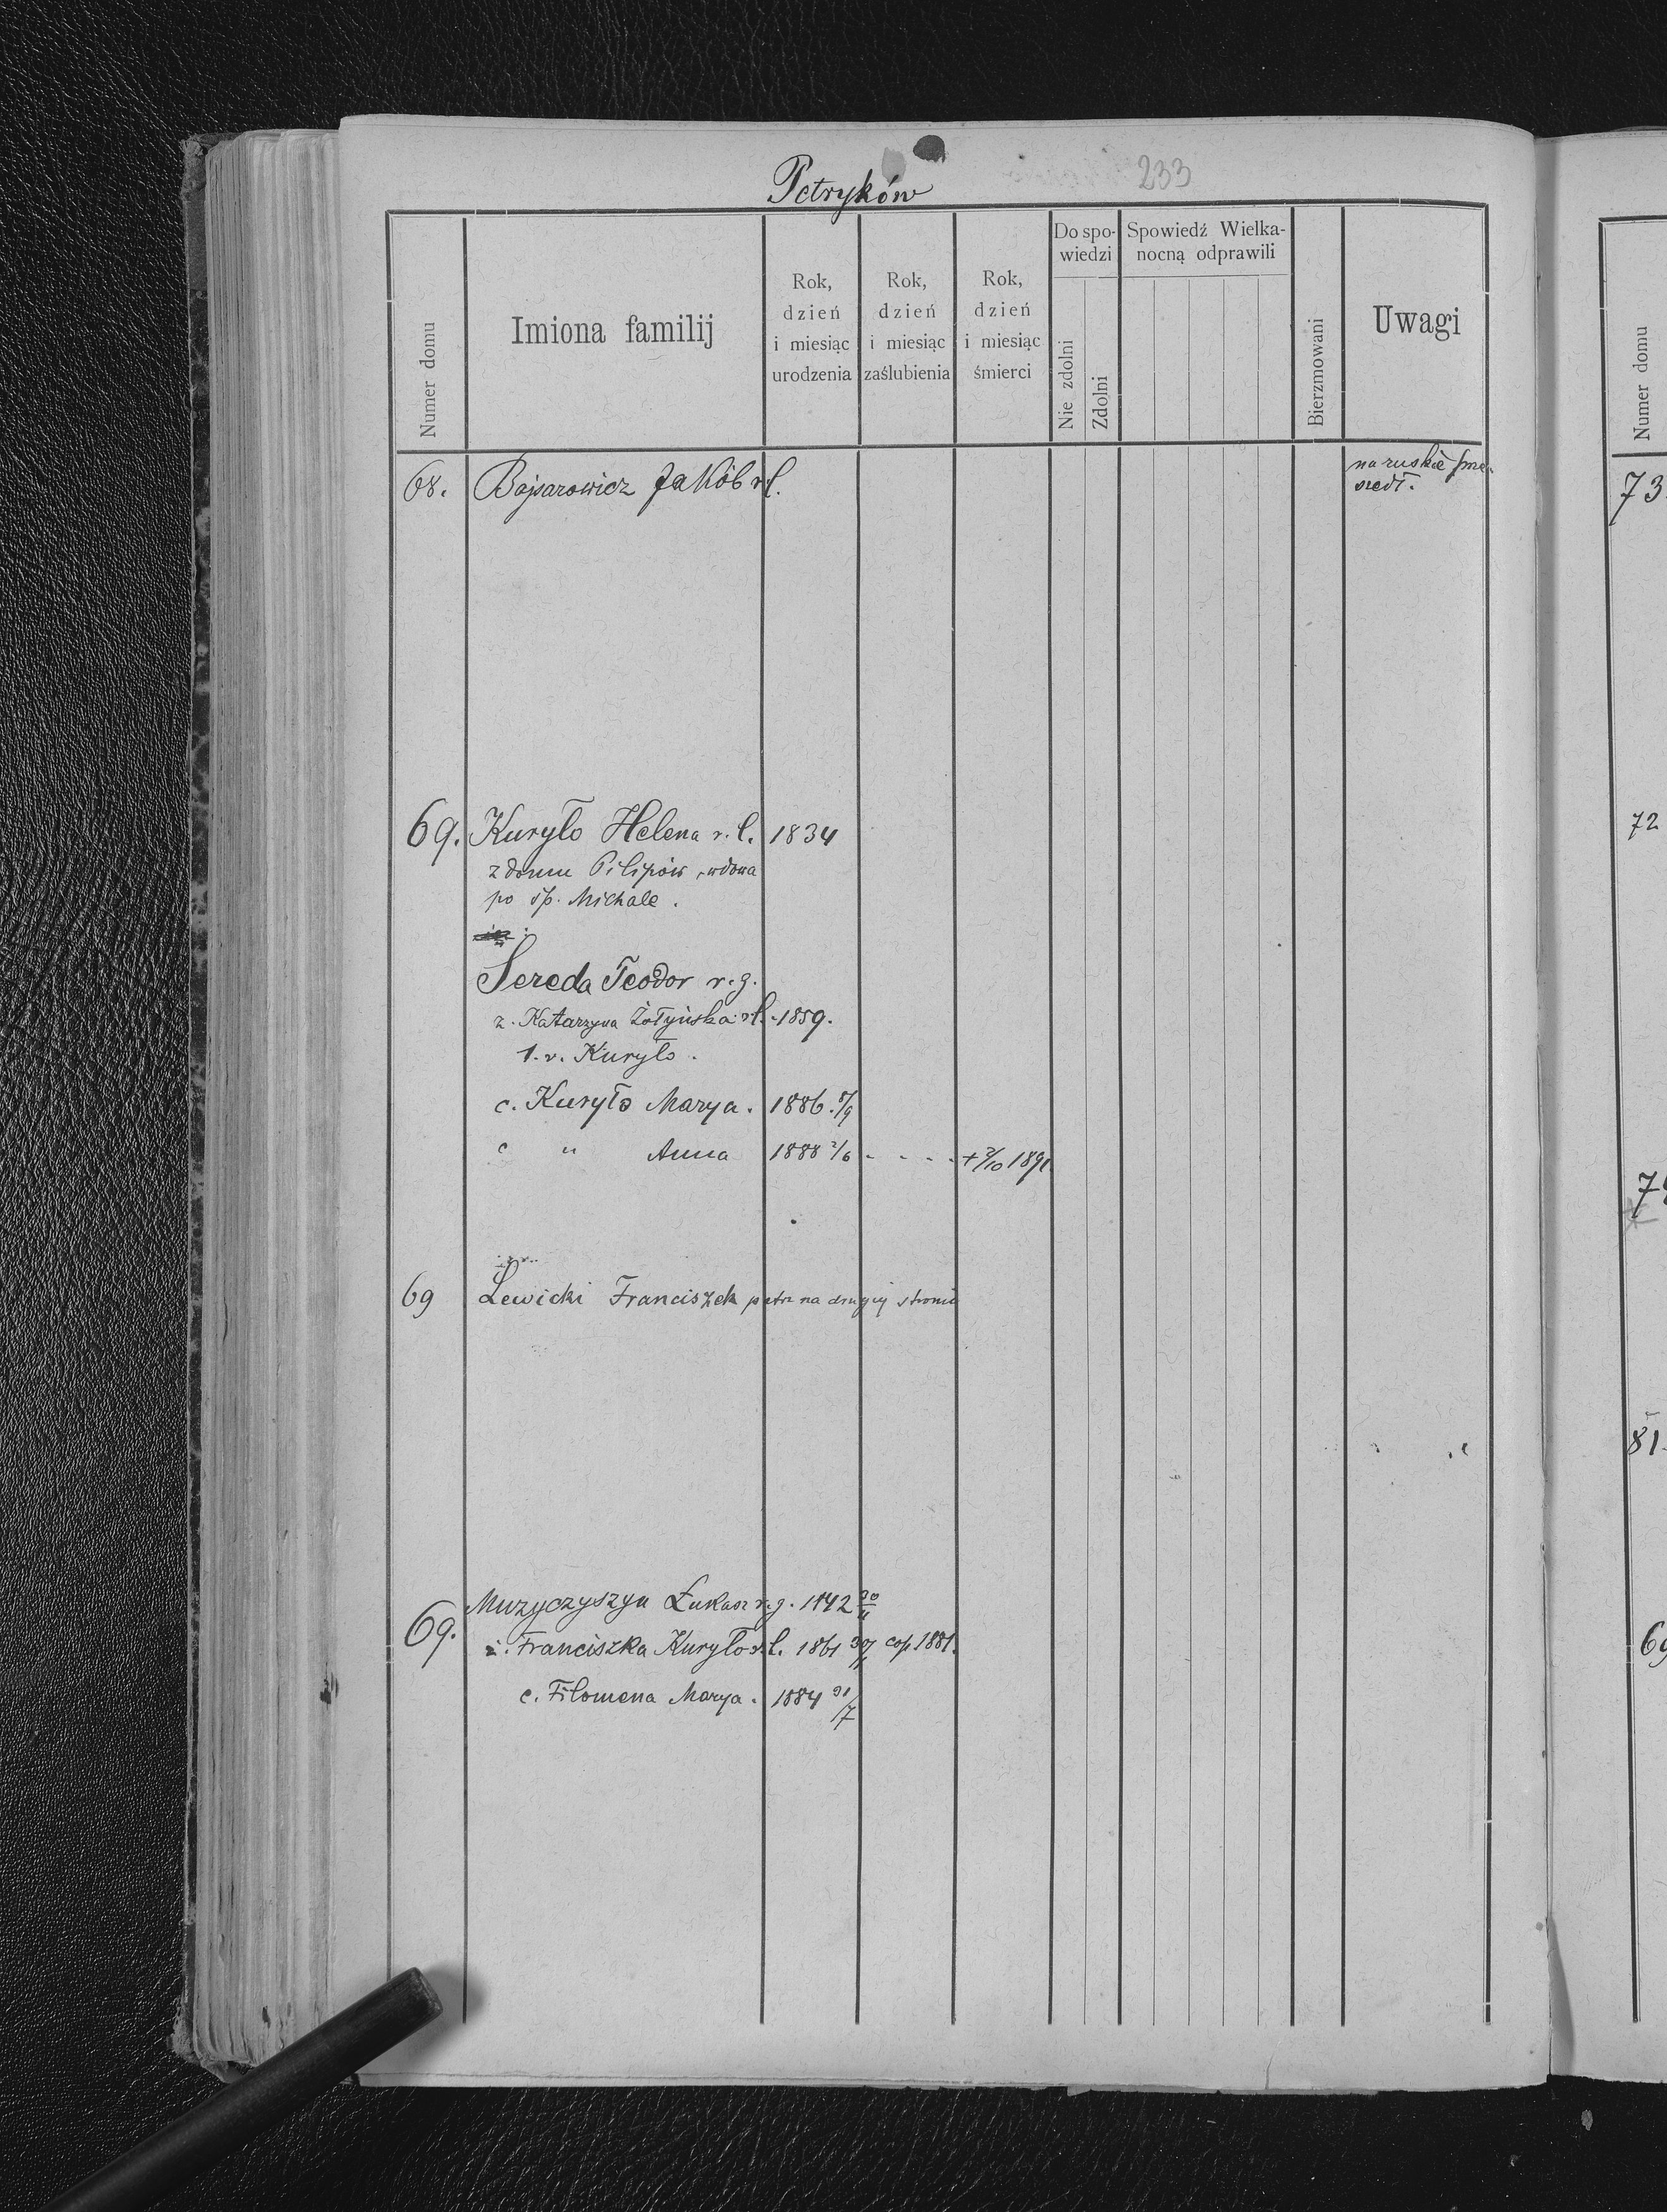 Petryków
233
Numer domu
Imiona familij
Rok, dzień i miesiąc urodzenia
Rok, dzień i miesiąc zaślubienia
Rok, dzień i miesiąc śmierci
Do spowiedzi
Nie zdolni
Zdolni
Spowiedź Wielkanocną odprawili
Bierzmowani
Uwagi
68. Bajsarowicz Jakób r.l. na ruskie prze-
szedł.
69. Kuryło Helena r. l. 1834
z domu Pilipów, wdowa
po śp. Michale.
Sereda Teodor r. g.
ż. Katarzyna Żołyńska r.l. 1859.
1. v. Kuryło.
c. Kuryło Marya. 1886. 8/9
c " Anna 1888 2/6 - - - - + 2/10 1891
69 Lewicki Franciszek patrz na drugiej stronie
69. Muzyczyszyn Łukasz r. g. 1842 30/11
ż. Franciszka Kuryło r. l. 1861 cop 1881.
c. Filomena Marya. 1884 31/7
Numer domu
73.
72
81
69